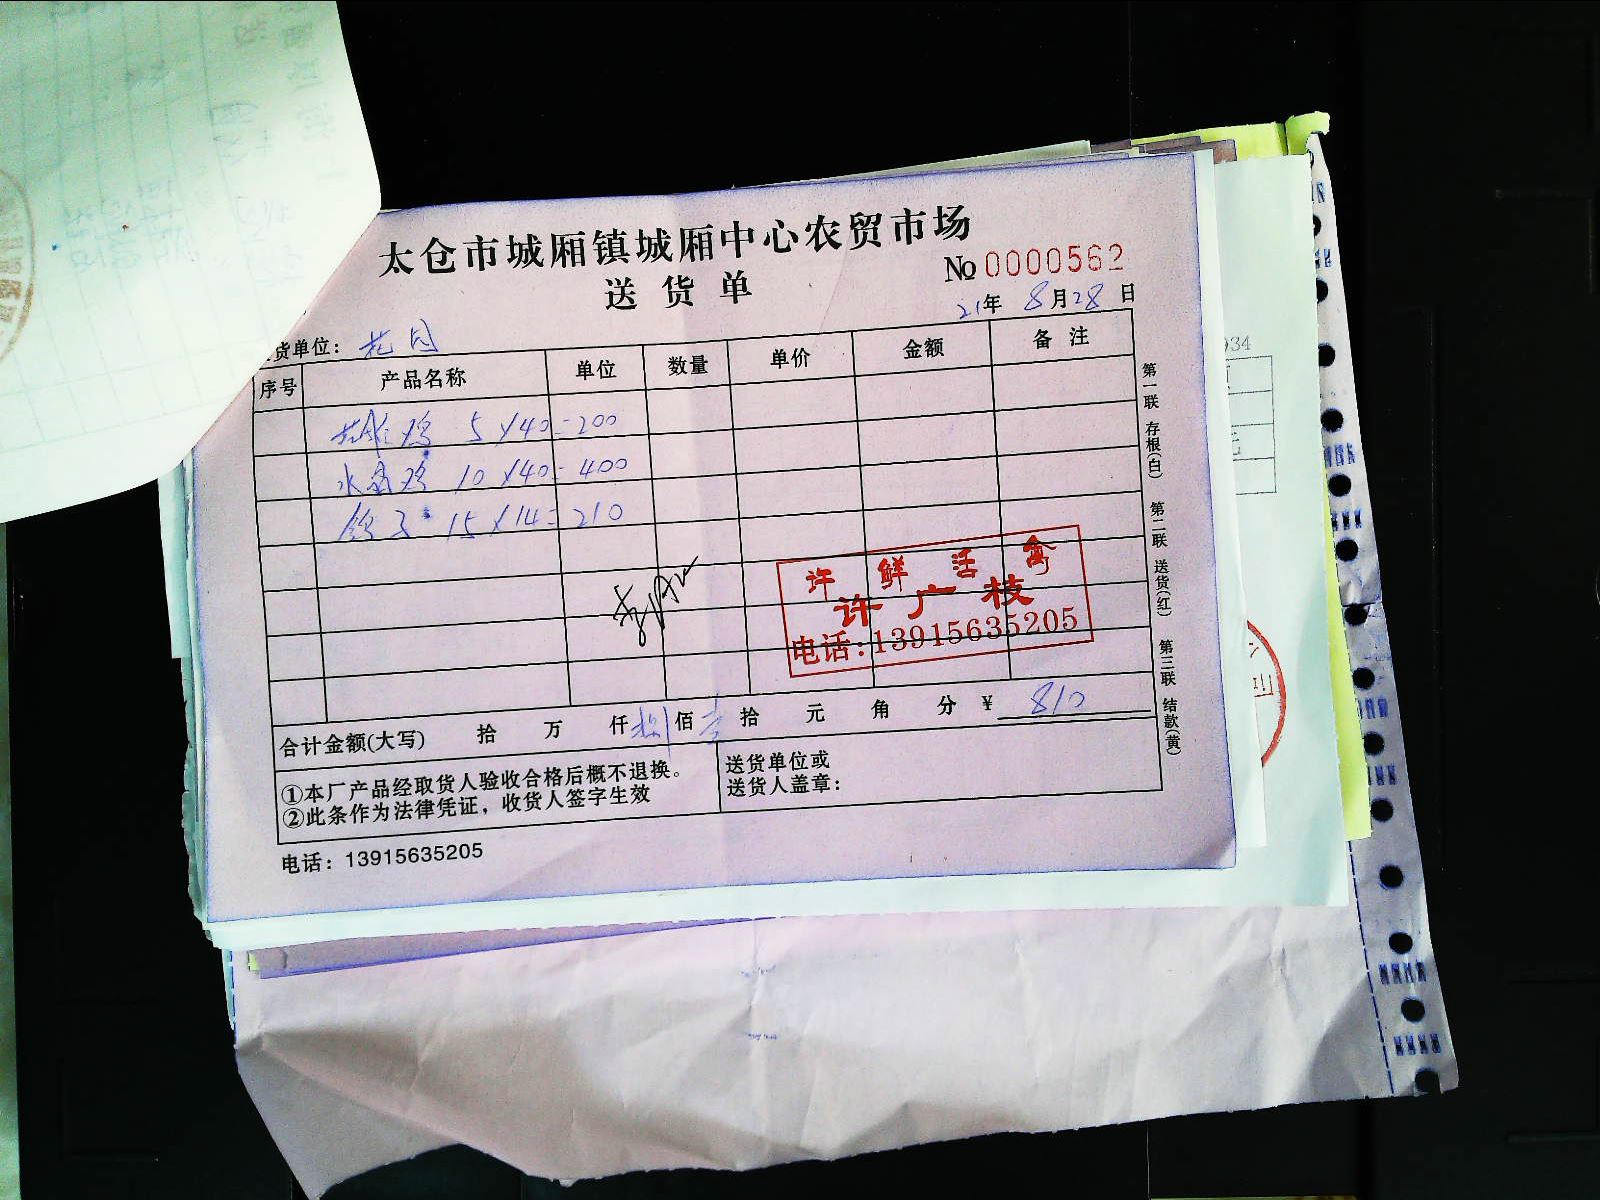 太仓市城厢镇城厢中心农贸市场
送货单
№ 0000562
21年 8月28日
货单位： 花园
序号 产品名称 单位 数量 单价 金额 备注
鸡 5×40=200
水 鸡 10×40=400
鸽子 15×14=210
许鲜活禽
许广枝
电话:13915635205
合计金额(大写) 拾 万 仟 捌佰 壹拾 元 角 分 ¥ 810
①本厂产品经取货人验收合格后概不退换。
②此条作为法律凭证，收货人签字生效
送货单位或
送货人盖章：
电话：13915635205
第一联 存根(白) 第二联 送货(红) 第三联 结款(黄)
934